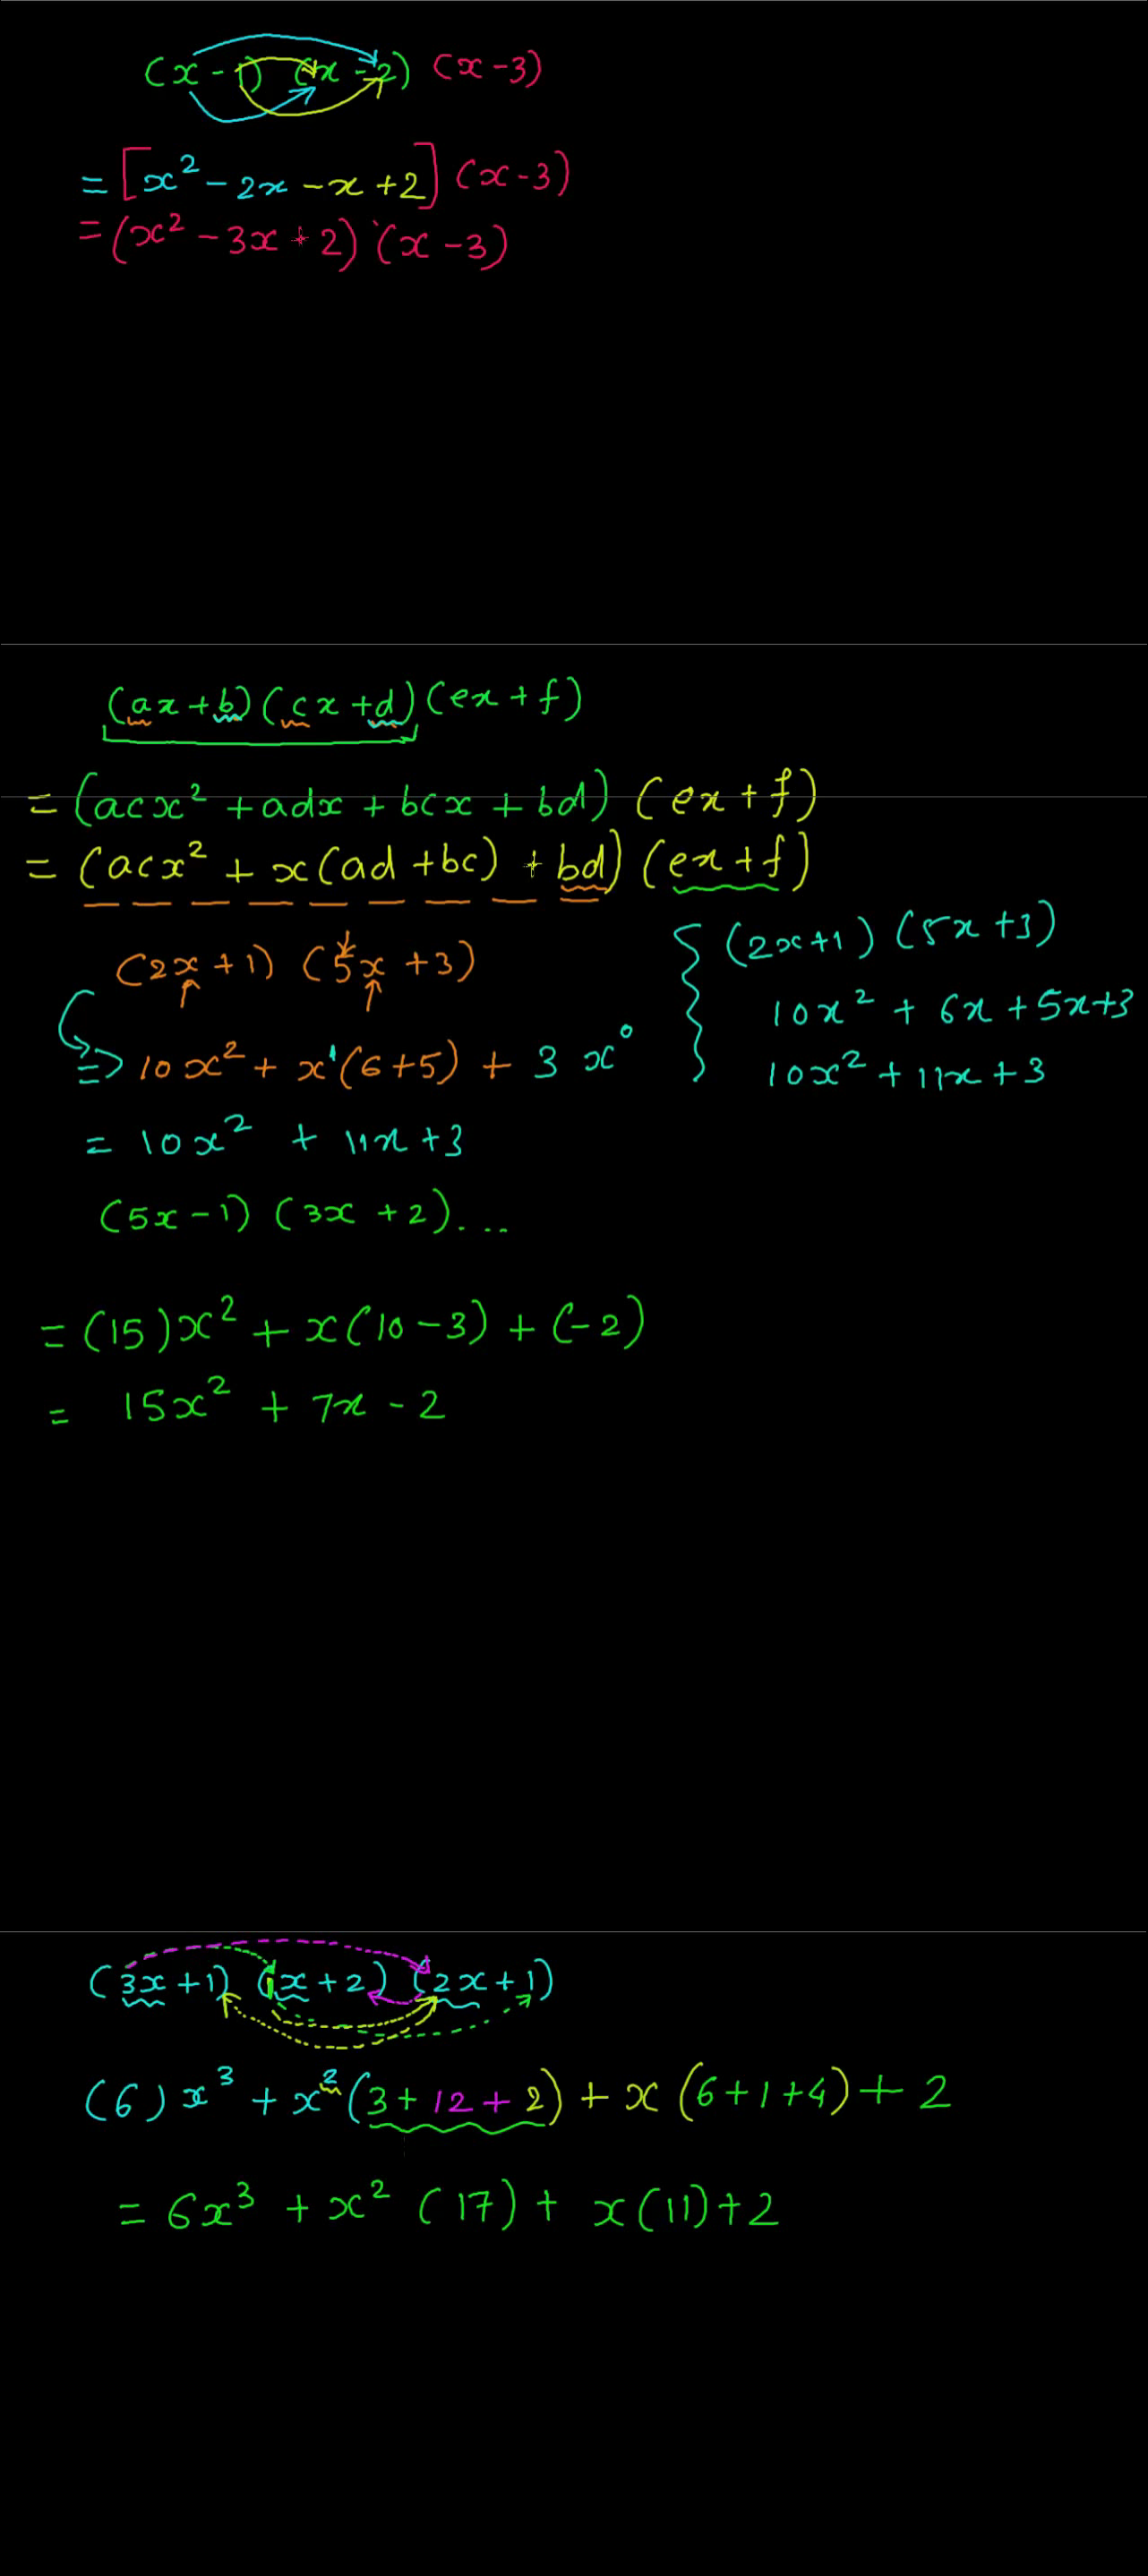 (x - 1) (x - 2) (x - 3)
= [x² - 2x - x + 2] (x - 3)
= (x² - 3x + 2) (x - 3)
(ax + b) (cx + d) (ex + f)
= (acx² + adx + bcx + bd) (ex + f)
= (acx² + x(ad + bc) + bd) (ex + f)
(2x + 1) (5x + 3)
(2x + 1) (5x + 3)
10x² + 6x + 5x + 3
=> 10x² + x¹(6 + 5) + 3 x⁰
10x² + 11x + 3
= 10x² + 11x + 3
(5x - 1) (3x + 2)....
= (15)x² + x(10 - 3) + (-2)
= 15x² + 7x - 2
(3x + 1) (1x + 2) (2x + 1)
(6) x³ + x² (3 + 12 + 2) + x (6 + 1 + 4) + 2
= 6x³ + x² (17) + x(11) + 2